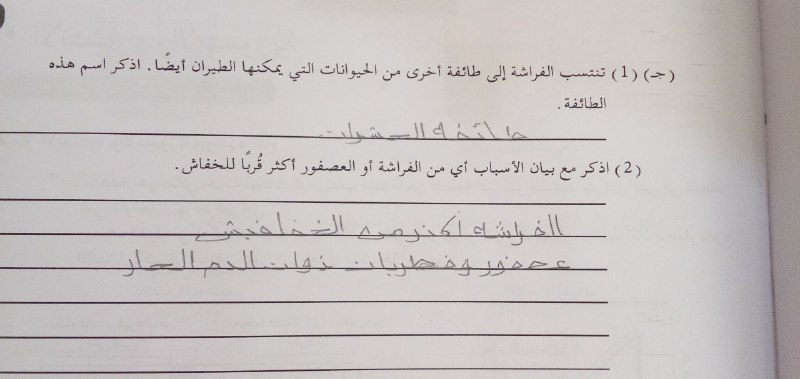 (جـ) (1) تنتسب الفراشة إلى طائفة أخرى من الحيوانات التي يمكنها الطيران أيضًا. اذكر اسم هذه
الطائفة.
طائفه الحشرات
(2) اذكر مع بيان الأسباب أي من الفراشة أو العصفور أكثر قُربًا للخفاش.
الفراشه اكثر من الخفافيش
عصفور وفطريات ذوات الدم الحار